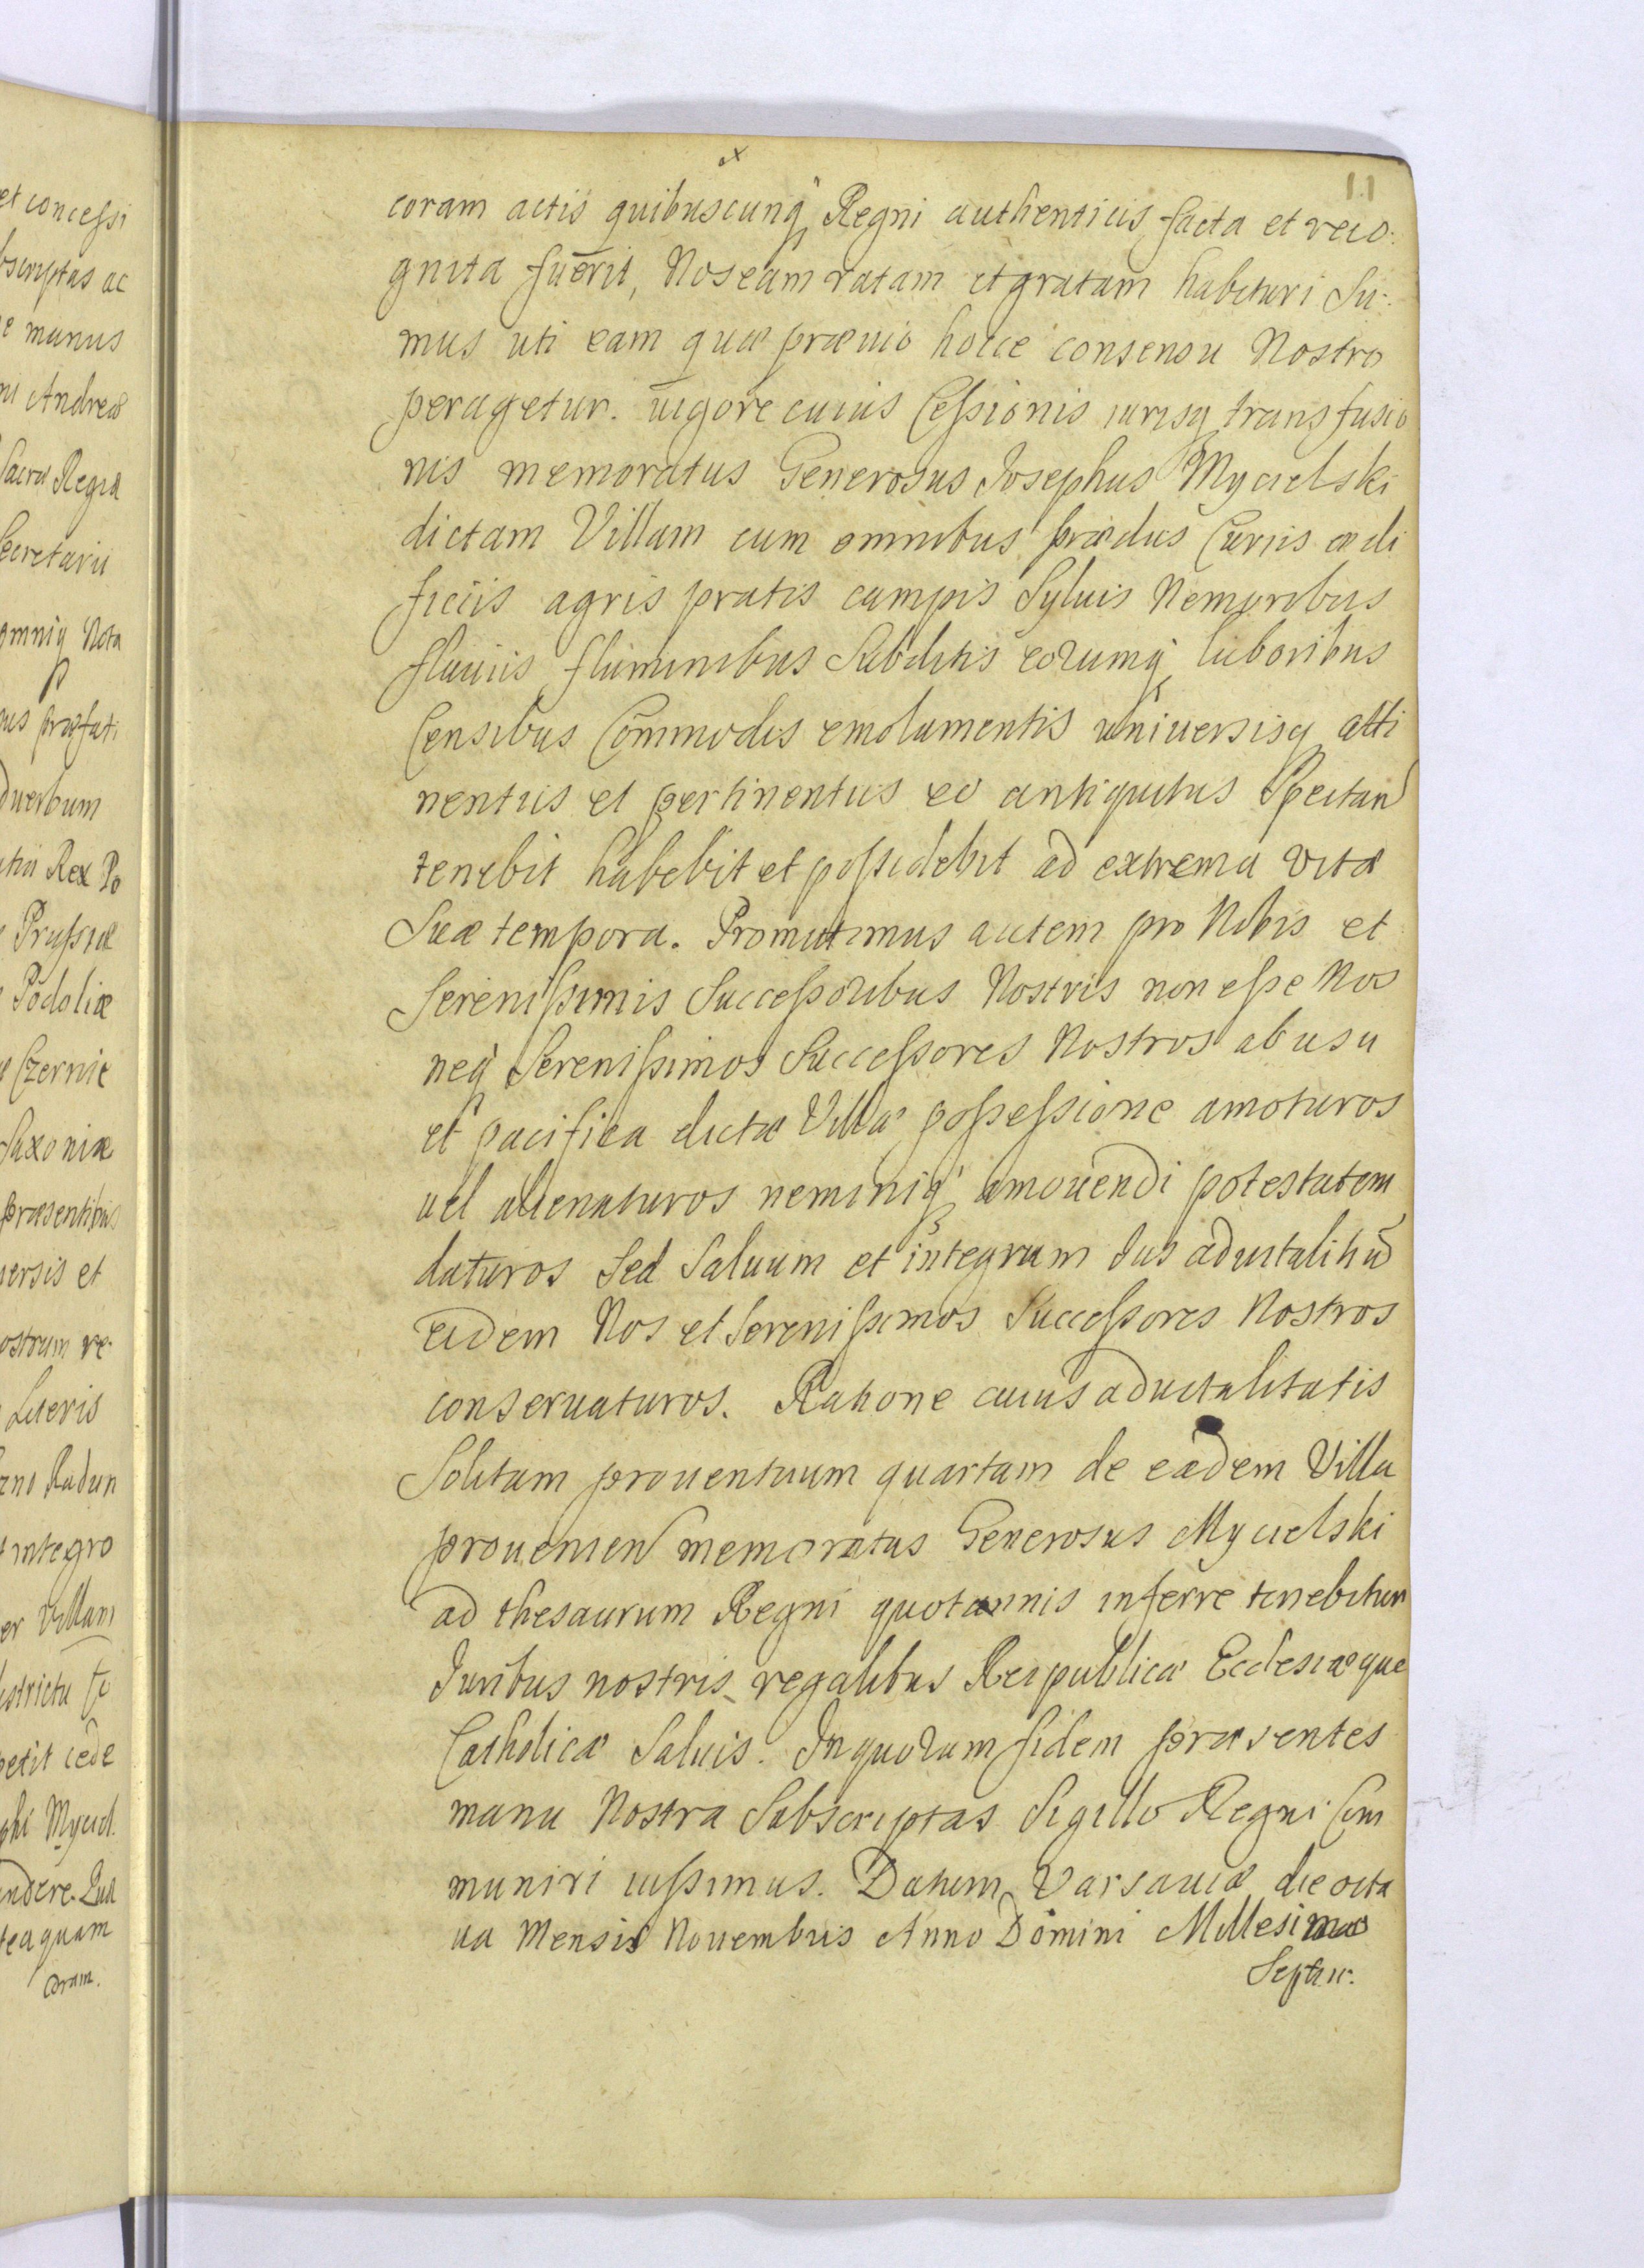 11
coram actis quibuscunq Regni authenticis facta et reco:
gnita fuerit, Nos eam ratam et gratam habituri Su:
mus uti eam quæ præuio hocce consensu Nostro
peragetur. uigore cuius Cessionis iurisq transfusio
nis memoratus Generosus Josephus Mycielski
dictam Villam cum omnibus prædiis Curiis ædi
ficiis agris pratis campis Syluis Nemoribus
fluuiis fluminibus Subditis eorumq laboribus
Censibus Commodis emolumentis uniuersisq atti
nentiis et pertinentiis eo antiquitus Spectan
tenebit habebit et possidebit ad extrema vitæ
Suæ tempora. Promittimus autem pro Nobis et
Serenissimis Successoribus Nostris non esse Nos
neq Serenissimos Successores Nostros ab usu
et pacifica dictæ Villæ possessione amoturos
uel alienaturos neminiq amouendi potestatem
daturos Sed Saluum et integrum Jus aduitalitiu
eidem Nos et Serenissimos Successores Nostros
conseruaturos. Ratione cuius aduitalitatis
Solitam prouentuum quartam de eadem Villa
prouenien memoratus Generosus Mycielski
ad thesaurum Regni quotannis inferre tenebitur
Juribus nostris regalibus Reipublicæ Ecclesiæque
Catholicæ Saluis. In quorum fidem præsentes
manu Nostra Subscriptas Sigillo Regni Com
muniri iussimus. Datum Varsauiæ die octa
ua Mensis Nouembris Anno Domini Millesimo
et concessi
bscriptas ac
manus
ni Andreæ
Sacræ Regia
Secretarii
omniq Nota
præfati
duerbum
Rex Po
Prussiæ
Podoliæ
Czernie
Saxoniæ
præsentibus
uersis et
ostrum re
integro
er Villam
istrictu
petit cede
phi Myciel.
teaquam
coram.